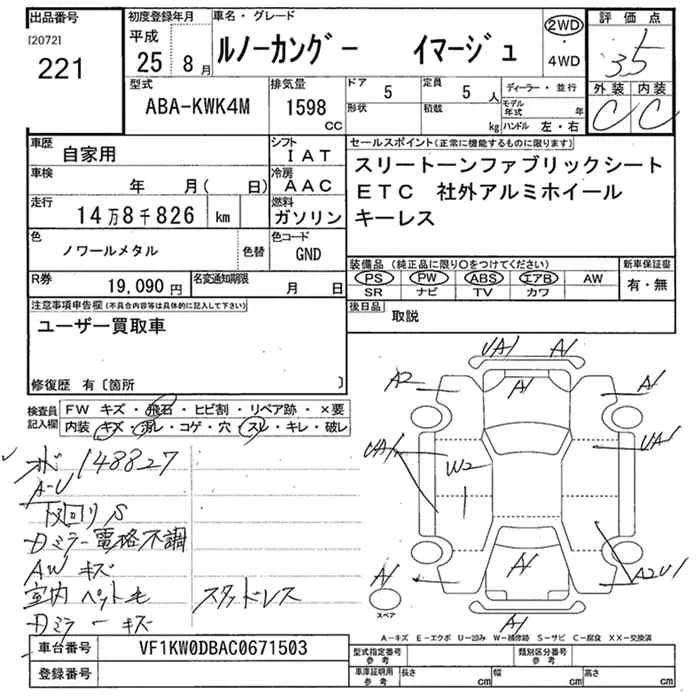 出品番号 初度登録年月 車名・グレード 評価点
[2072]
221
平成
25 8月
ルノーカングー イマージュ
2WD
・
4WD
3.5
型式 排気量 ドア 定員 ディーラー・並行 外装 内装
ABA-KWK4M 1598 CC 5 5 人
形状 積載 kg モデル年式 年
ハンドル 左・右
C C
車歴 自家用 シフト IAT
車検 年 月( 日) 冷房 AAC
走行 14万8千826 km 燃料 ガソリン
色 ノワールメタル 色替 色コード GND
R券 19,090円 名変通知期限 月 日
セールスポイント(正常に機能するものに限ります)
スリートーンファブリックシート
ETC 社外アルミホイール
キーレス
装備品(純正品に限り○をつけてください) 新車保証書
PS PW ABS エアB AW 有・無
SR ナビ TV カワ
後日品 取説
注意事項申告欄(不具合内容等は具体的に記入して下さい)
ユーザー買取車
修復歴 有〔箇所 〕
検査員記入欄 FW キズ・飛石・ヒビ割・リペア跡・×要
内装 キズ・汚レ・コゲ・穴・スレ・キレ・破レ
148827
A-U
下回りS
Dミラー電格不調
AW キズ
室内 ペット毛 スタッドレス
Dミラーキズ
UA1 A1
A2 A1 A1
UA1 UA1
W2
A1 A1 A2U1
スペア
A1
A―キズ E―エクボ U―凹み W―補修跡 S―サビ C―腐食 XX―交換済
車台番号 VF1KW0DBAC0671503
登録番号
型式指定番号 参考 類別区分番号 参考
車庫証明用 参考 長さ cm 幅 cm 高さ cm